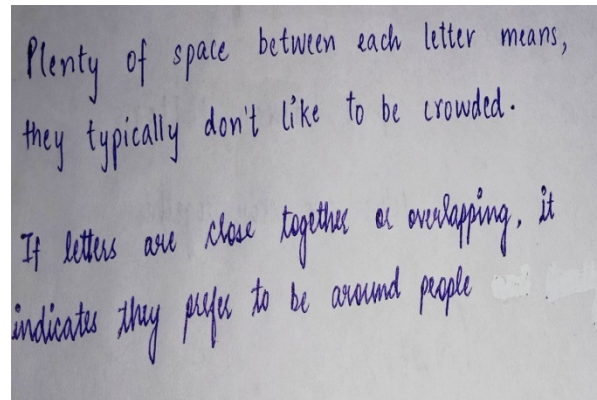 Plenty of space between each letter means,
they typically don't like to be crowded.
If letters are close together or overlapping, it
indicates they prefer to be around people